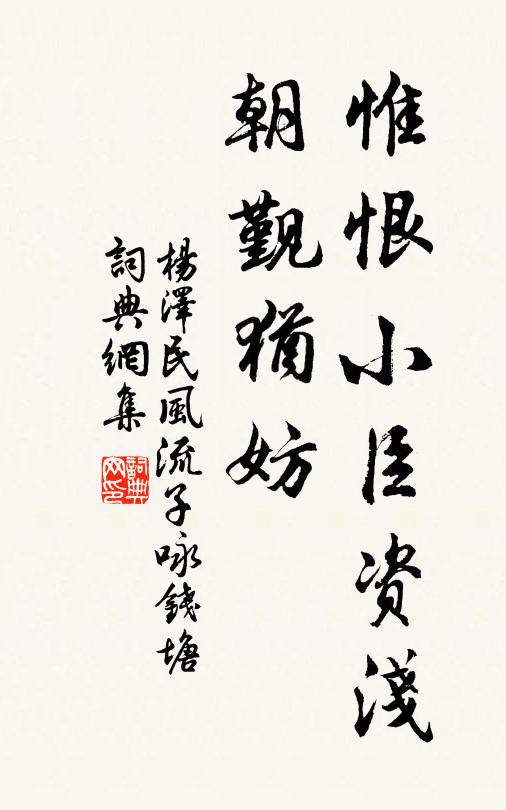 惟恨小臣资淺
朝覲猶妨
楊澤民風流子咏錢塘
詞典網集
詞典網印